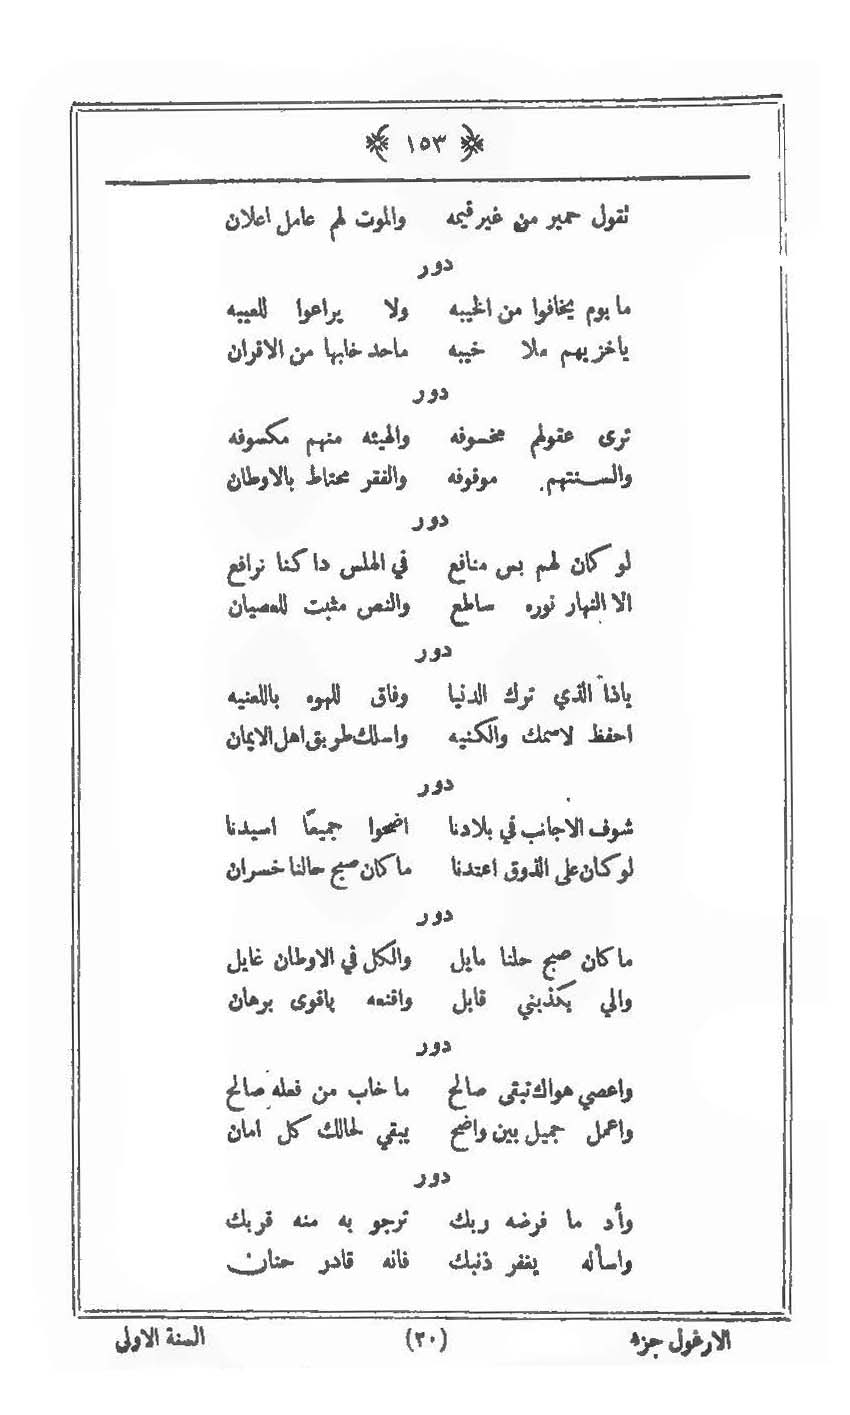 ﴿ ١٥٣ ﴾
نقول حمير من غير قيمه والموت لهم عامل اعلان
دور
ما يوم يخافوا من الخيبه ولا يراعوا للعيبه
ياخزيهم ملا خيبه ماحد خابها من الاقران
دور
ترى عقولهم مخسوفه والهيئه منهم مكسوفه
والسنتهم موقوفه والفقر محتاط بالاوطان
دور
لو كان لهم بس منافع في الهلس دا كنا نرافع
الا النهار نوره ساطع والنص مثبت للعصيان
دور
ياذا الذي ترك الدنيا وفاق للهوه باللعنيه
احفظ لاسمك والكنيه واسلك طريق اهل الايمان
دور
شوف الاجانب في بلادنا اضحوا جميعًا اسيدنا
لو كان على الذوق اعتدنا ما كان صبح حالنا خسران
دور
ما كان صبح حلنا مايل والكل في الاوطان غايل
والي يكذبني قابل واقنعه باقوى برهان
دور
واعصي هواك تبقى صالح ما خاب من فعله صالح
واعمل جميل بين واضح يبقي لحالك كل امان
دور
وأد ما فرضه ربك ترجو به منه قربك
واسأله يغفر ذنبك فانه قادر حنان
الارغول جزء (٢٠) السنة الاولى